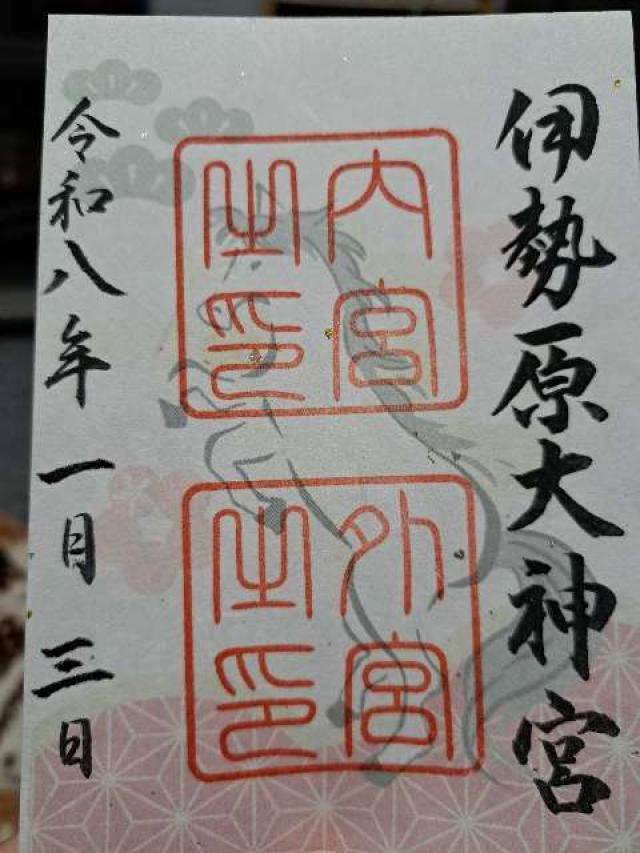 伊勢原大神宮
内宮之印
外宮之印
令和八年一月三日